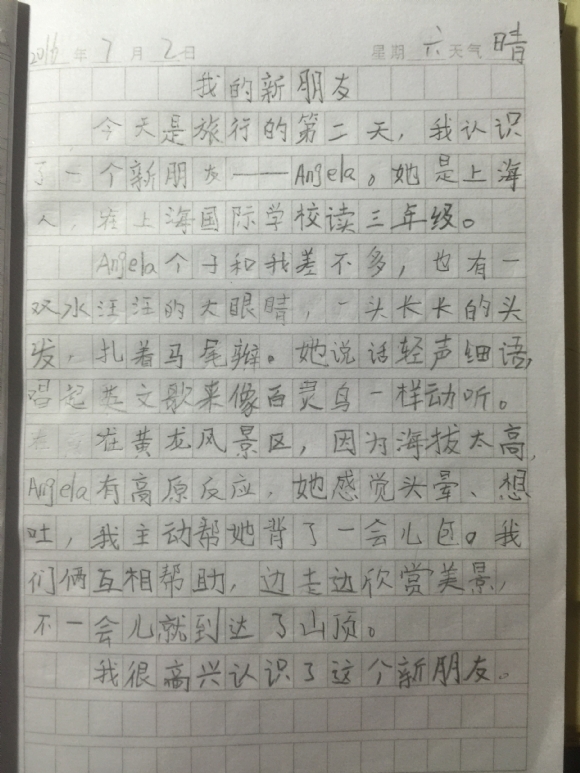 2016年7月2日 星期六天气晴
我的新朋友
今天是旅行的第二天，我认识
了一个新朋友——Angela。她是上海
人，在上海国际学校读三年级。
Angela个子和我差不多，也有一
双水汪汪的大眼睛，一头长长的头
发，扎着马尾辫。她说话轻声细语，
唱起英文歌来像百灵鸟一样动听。
在黄龙风景区，因为海拔太高，
Angela有高原反应，她感觉头晕、想
吐，我主动帮她背了一会儿包。我
们俩互相帮助，边走边欣赏美景，
不一会儿就到达了山顶。
我很高兴认识了这个新朋友。